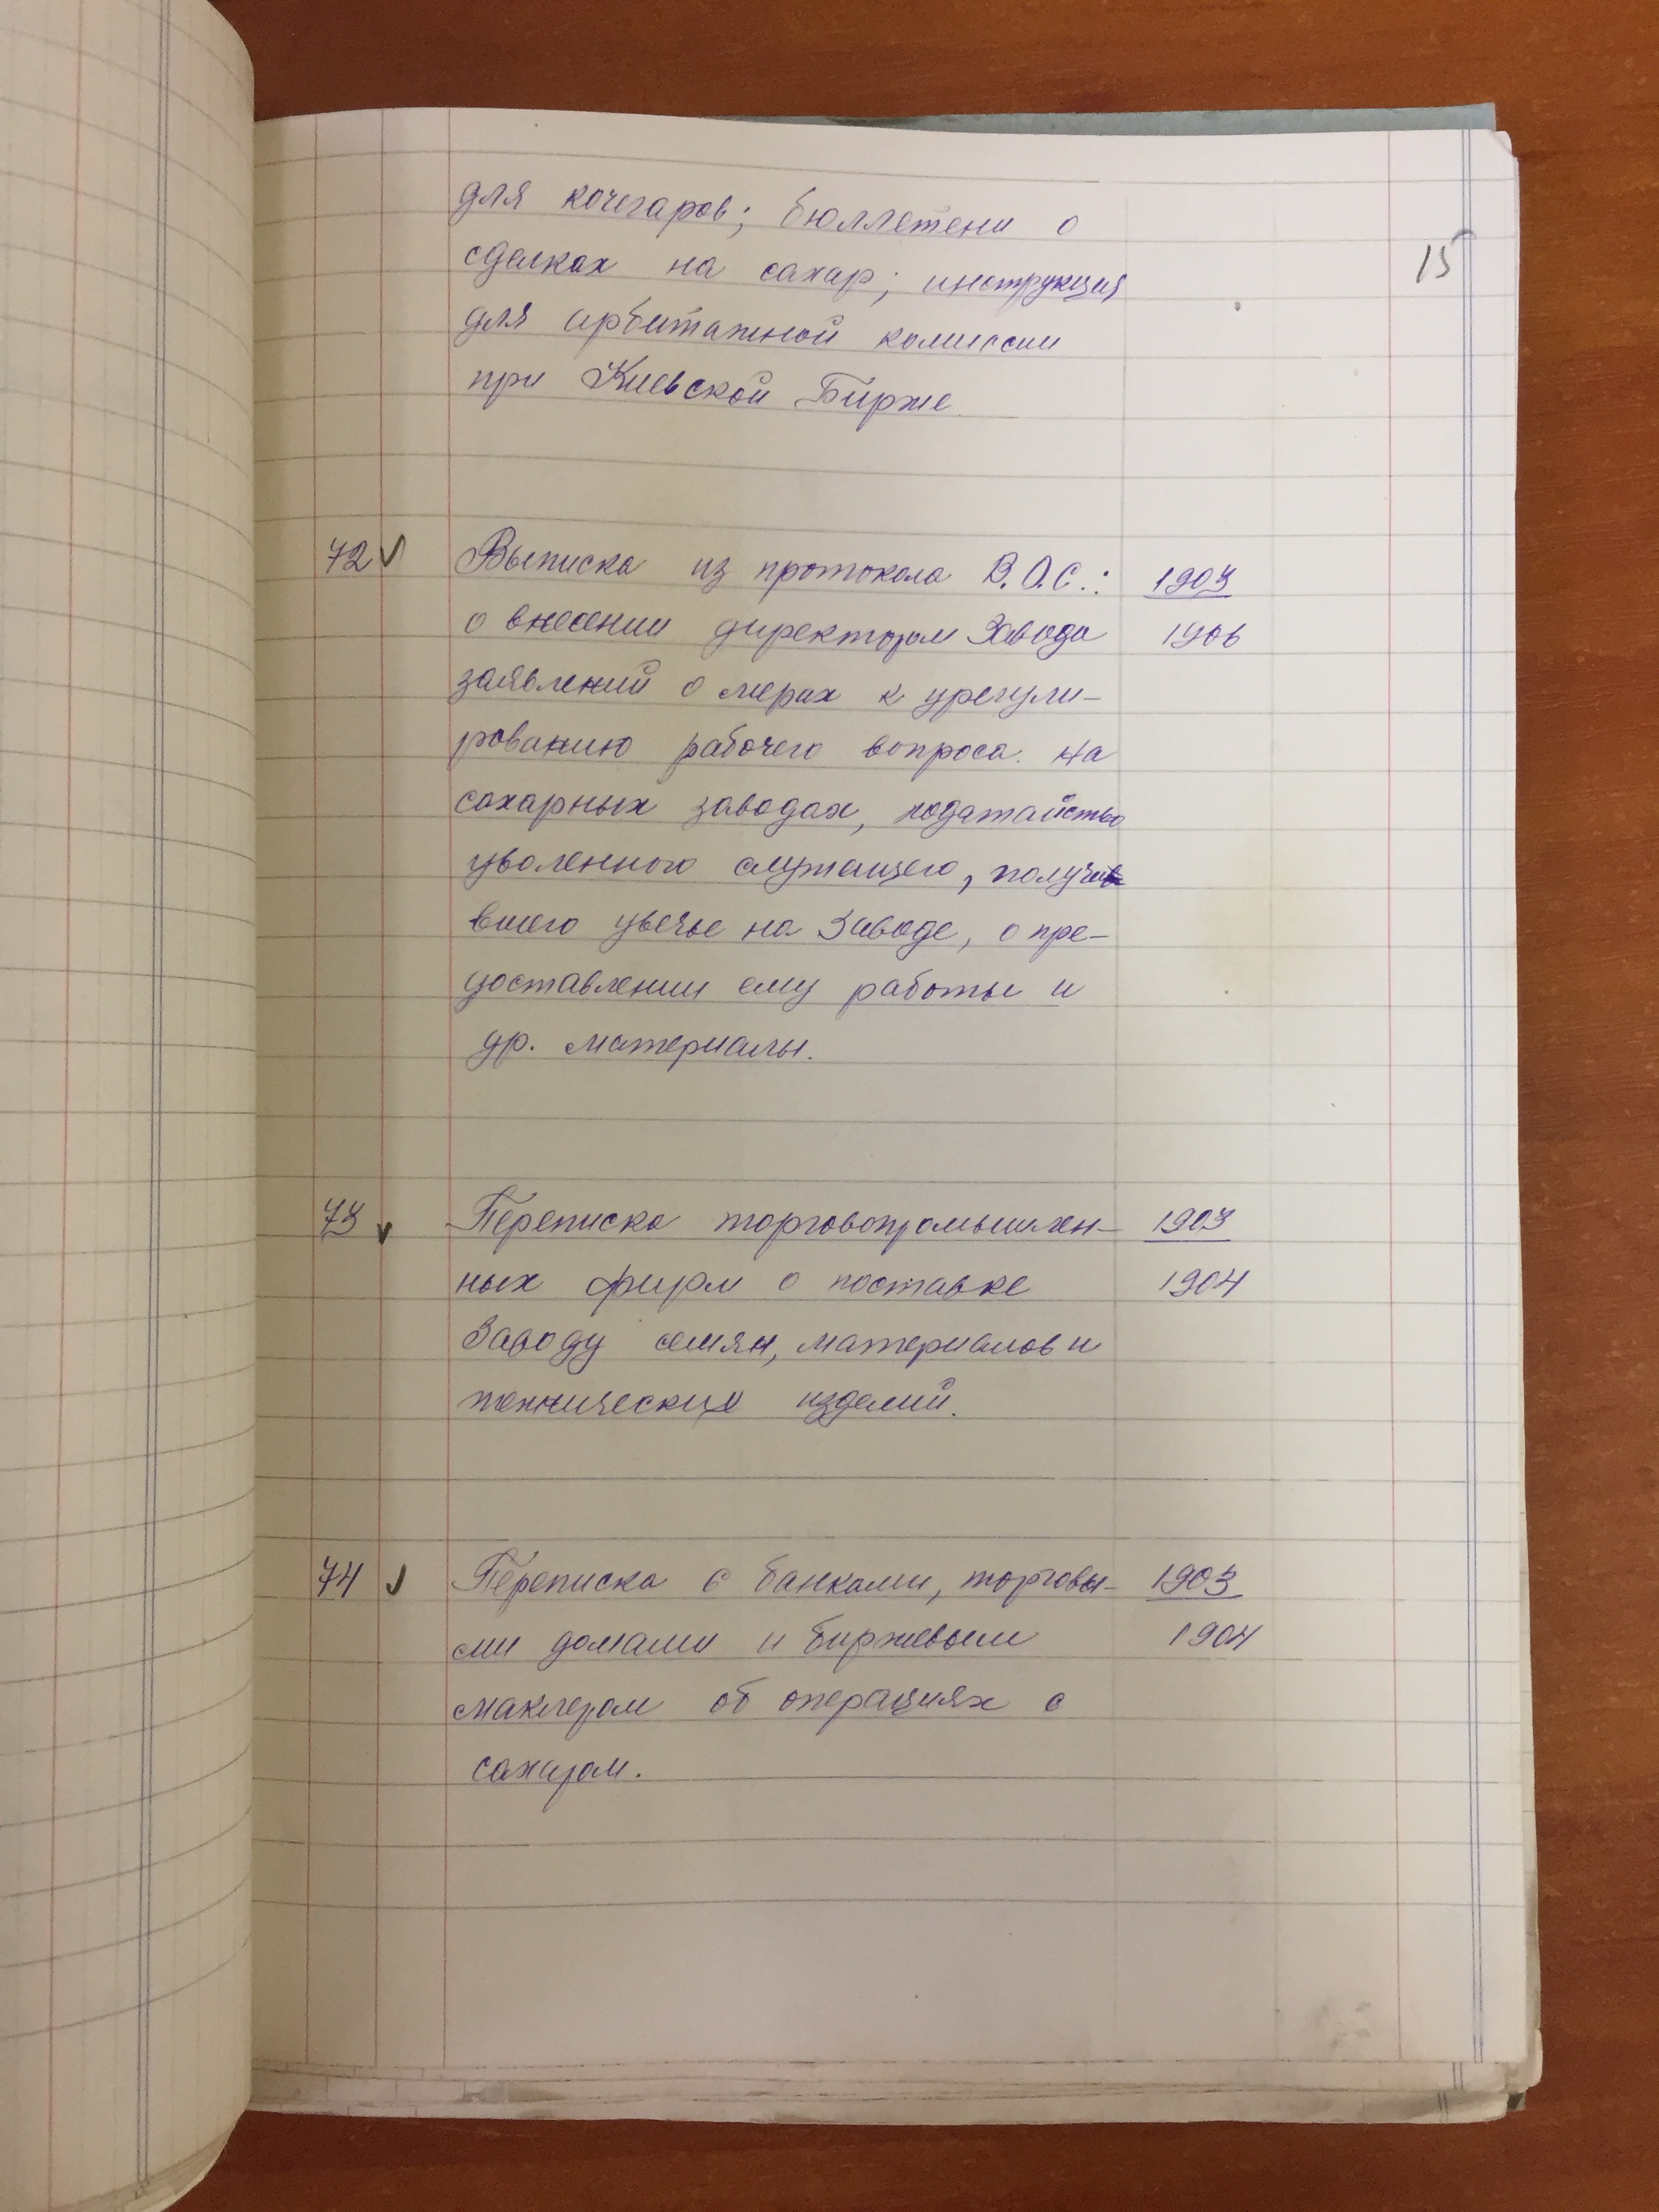 15
для кочегаров; бюллетени о
сделках на сахар; инструкция
для арбитажной комиссии
при Киевской Бирже.
72 ✓ Выписка из протокола В.О.С.: 1903
о внесении директором Завода 1906
заявлений о мерах к урегули-
рованию рабочего вопроса на
сахарных заводах, ходатайство
уволенного служащего, получи
вшего увечье на Заводе, о пре-
доставлении ему работы и
др. материалы.
73 ✓ Переписка торговопромышлен- 1903
ных фирм о поставке 1904
Заводу семян, материалов и
технических изделий.
74 ✓ Переписка с банками, торговы- 1903
ми домами и биржевым 1904
маклером об операциях с
сахаром.